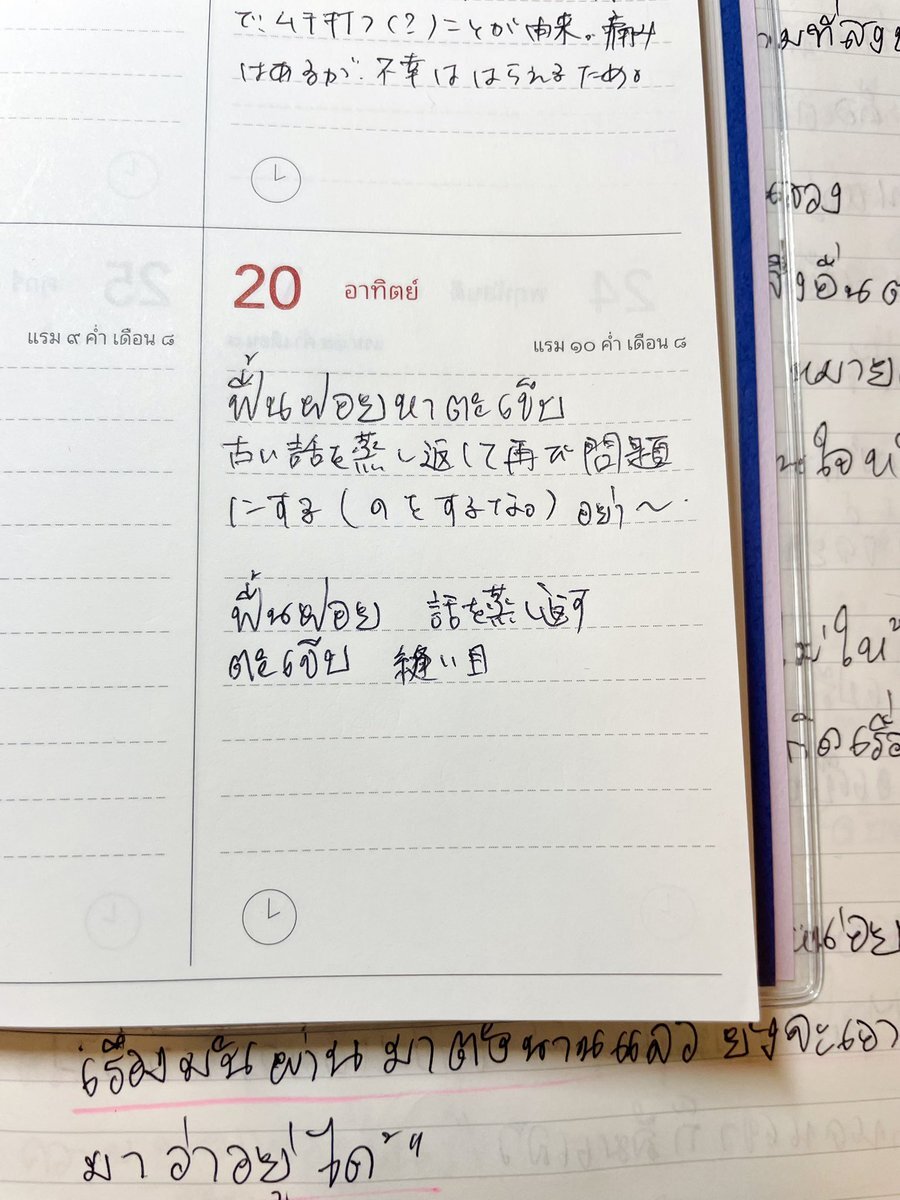 で、ムチ打つ(?)ことが由来。痛み
はあるが、不幸ははらえるため。
25
20 อาทิตย์
แรม ๙ ค่ำ เดือน ๘
แรม ๑๐ ค่ำ เดือน ๘
ฟื้นฝอยหาตะเข็บ
古い話を蒸し返して再び問題
にする(のをするなο) อย่า〜
ฟื้นฝอย 話を蒸し返す
ตะเข็บ 縫い目
มที่สงบ
ของ
สิ่งอื่น
หมาย
ใจ
ไม่ให้
เรื่องมันผ่านมาตั้งนานแล้ว ยังจะเอา
มาว่าอยู่ได้"